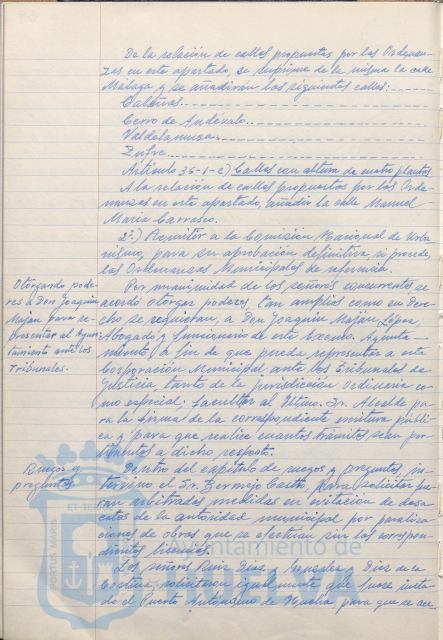 De la relación de calles propuestas por las Ordenan-
zas en este apartado, se suprime de la misma la calle
Málaga y se añadirán las siguientes calles:
Calañas
Cerro de Andévalo
Valdelamusa
Zufre
Artículo 36-1-c) Calles con altura de cuatro plantas
A la relación de calles propuestas por las Orde-
nanzas en este apartado, añadir la calle Manuel
María Carrasco.
2º.) Remitir a la Comisión Nacional de Urba
nismo, para su aprobación definitiva, si procede,
las Ordenanzas Municipales de referencia.
Otorgando pode-
res a Don Joaquín
Maján para re-
presentar al Ayun
tamiento ante los
Tribunales.
Por unanimidad de los señores concurrentes se
acordó otorgar poderes, tan amplios como en Dere-
cho se requieran, a Don Joaquín Maján López,
Abogado y funcionario de este Excmo. Ayunta-
miento, a fin de que pueda representar a esta
Corporación Municipal ante los Tribunales de
Justicia, tanto de la jurisdicción Ordinaria co-
mo especial; facultar al Iltmo. Sr. Alcalde pa-
ra la firma de la correspondiente escritura públi-
ca y para que realice cuantos trámites sean per-
tinentes a dicho respecto.
Ruegos y
preguntas.
Dentro del capítulo de ruegos y preguntas, in-
tervino el Sr. Bermejo Castro, para solicitar se
an arbitradas medidas en evitación de desa-
catos de la autoridad municipal por paraliza-
ciones de obras que se efectúan sin las correspon-
dientes licencias.
Los señores Ruiz Díaz y González y Díaz de la
Cortina solicitaron igualmente que fuese insta-
do el Puerto Autónomo de Huelva para que se
Ayuntamiento de
HUELVA
PORTUS MARIS
ET TERRAE